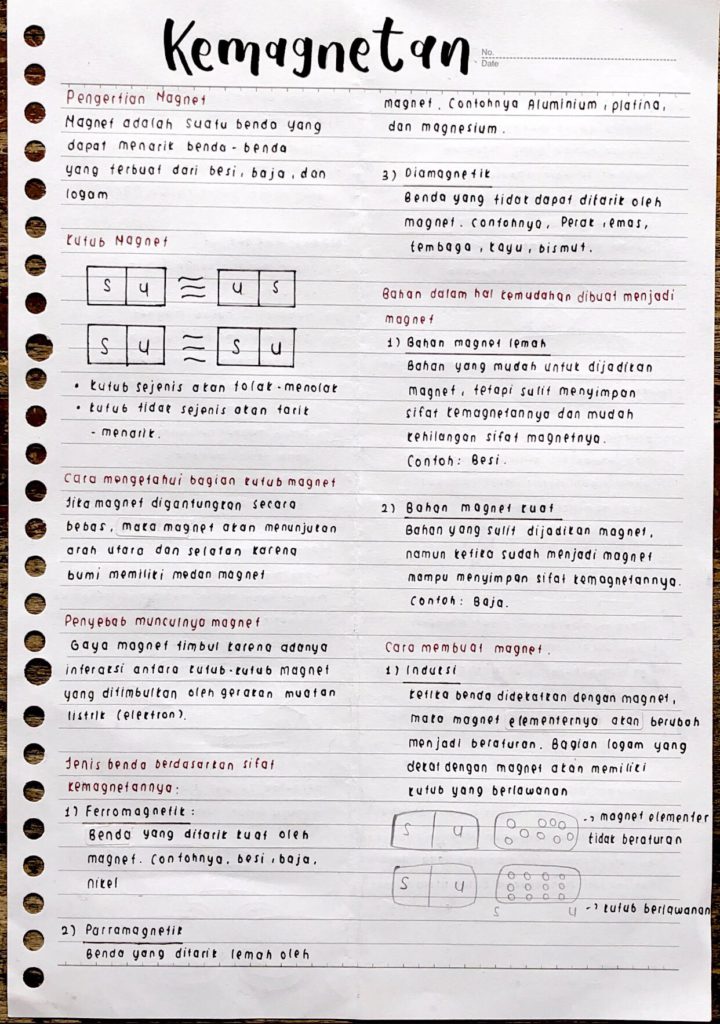 Kemagnetan
No.
Date
Pengertian Magnet
Magnet adalah suatu benda yang
dapat menarik benda-benda
yang terbuat dari besi, baja, dan
logam
Kutub Magnet
S U U S
S U S U
• Kutub sejenis akan tolak-menolak
• Kutub tidak sejenis akan tarik
-menarik.
Cara mengetahui bagian kutub magnet
Jika magnet digantungkan secara
bebas, maka magnet akan menunjukan
arah utara dan selatan karena
bumi memiliki medan magnet
Penyebab munculnya magnet
Gaya magnet timbul karena adanya
interaksi antara kutub-kutub magnet
yang ditimbulkan oleh gerakan muatan
listrik (elektron).
Jenis benda berdasarkan sifat
kemagnetannya:
1) Ferromagnetik:
Benda yang ditarik kuat oleh
magnet. Contohnya, besi, baja,
nikel
2) Parramagnetik
Benda yang ditarik lemah oleh
magnet. Contohnya Aluminium, platina,
dan magnesium.
3) Diamagnetik
Benda yang tidak dapat ditarik oleh
magnet. Contohnya, Perak, emas,
tembaga, kayu, bismut.
Bahan dalam hal kemudahan dibuat menjadi
magnet
1) Bahan magnet lemah
Bahan yang mudah untuk dijadikan
magnet, tetapi sulit menyimpan
sifat kemagnetannya dan mudah
kehilangan sifat magnetnya.
Contoh: Besi.
2) Bahan magnet kuat
Bahan yang sulit dijadikan magnet,
namun ketika sudah menjadi magnet
mampu menyimpan sifat kemagnetannya.
Contoh: Baja.
Cara membuat magnet.
1) Induksi
Ketika benda didekatkan dengan magnet,
maka magnet elementernya akan berubah
menjadi beraturan. Bagian logam yang
dekat dengan magnet akan memiliki
kutub yang berlawanan
S U -> magnet elementer
tidak beraturan
S U
S U -> kutub berlawanan